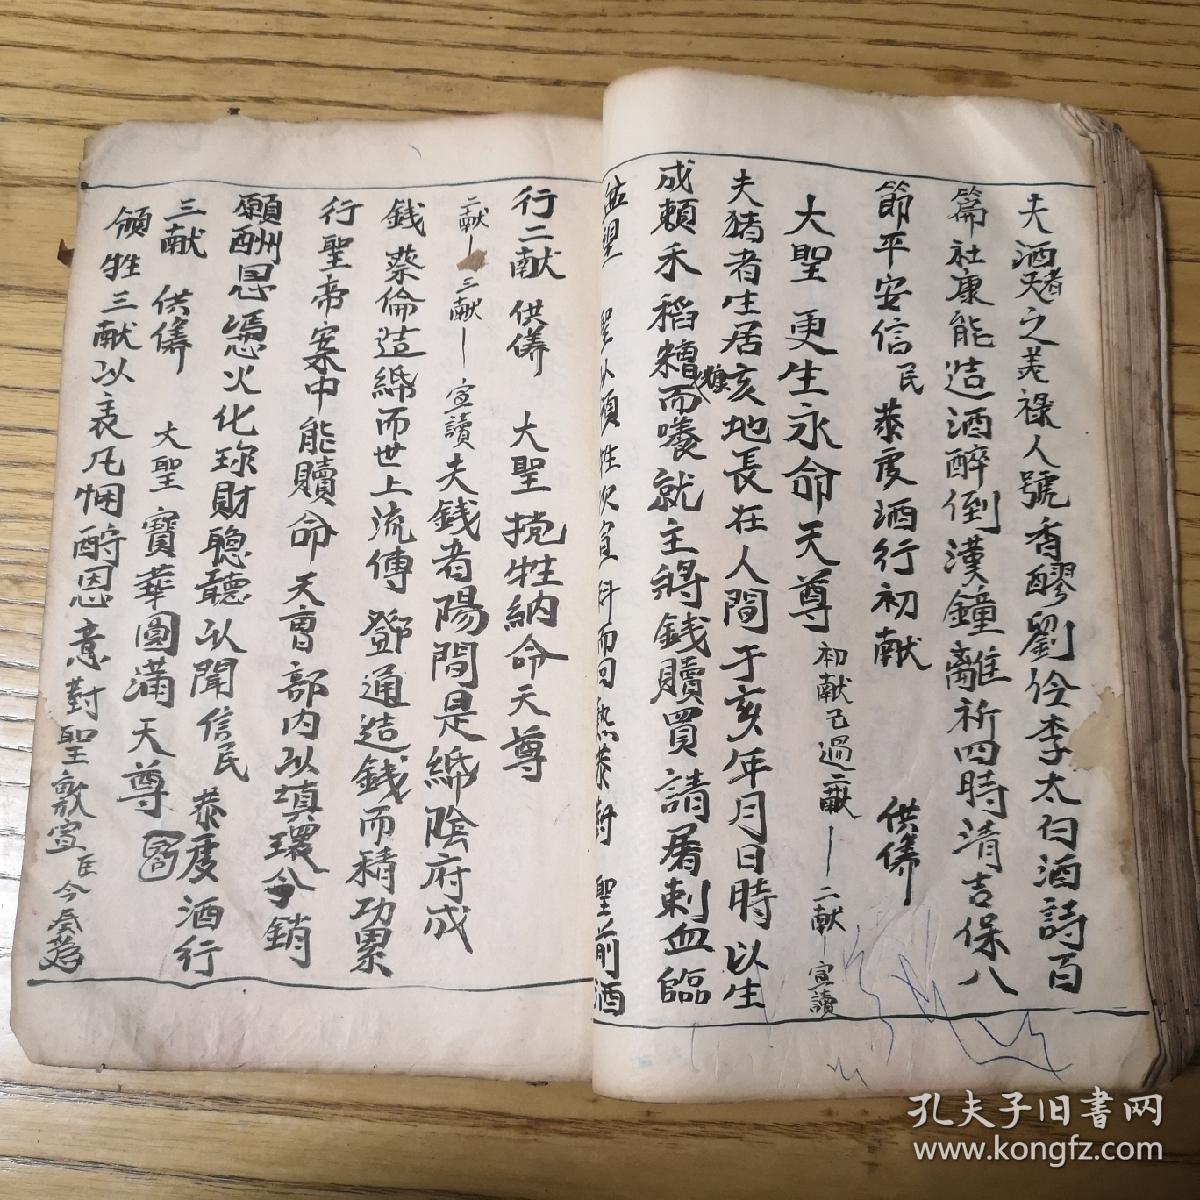 夫酒者天之美祿人號香醪劉伶李太白酒詩百
篇社康能造酒醉倒漢鐘離祈四時清吉保八
節平安信民恭虔酒行初献 供儀
大聖更生永命天尊 初献已過二献 二献 宣讀
夫猪者生居亥地長在人間于亥年月日時以生
成賴禾稻糟糠而喂养就主將錢贖買請屠刺血臨
聖以領牲次宣科而回熟恭對 聖前酒
行二献 供儀 大聖 牲納命天尊
二献 三献 宣讀夫錢者陽間是紙陰府成
錢蔡倫造紙而世上流傳鄧通造錢而積功累
行聖帝案中能贖命天曹部内以填還今銷
願酬恩馮火化珎財聰聽以聞信民恭虔酒行
三献 供儀 大聖寶華圓滿天尊
領牲三献以表凡悃酧恩意對聖敷宣 今奏
孔夫子旧書网
www.kongfz.com